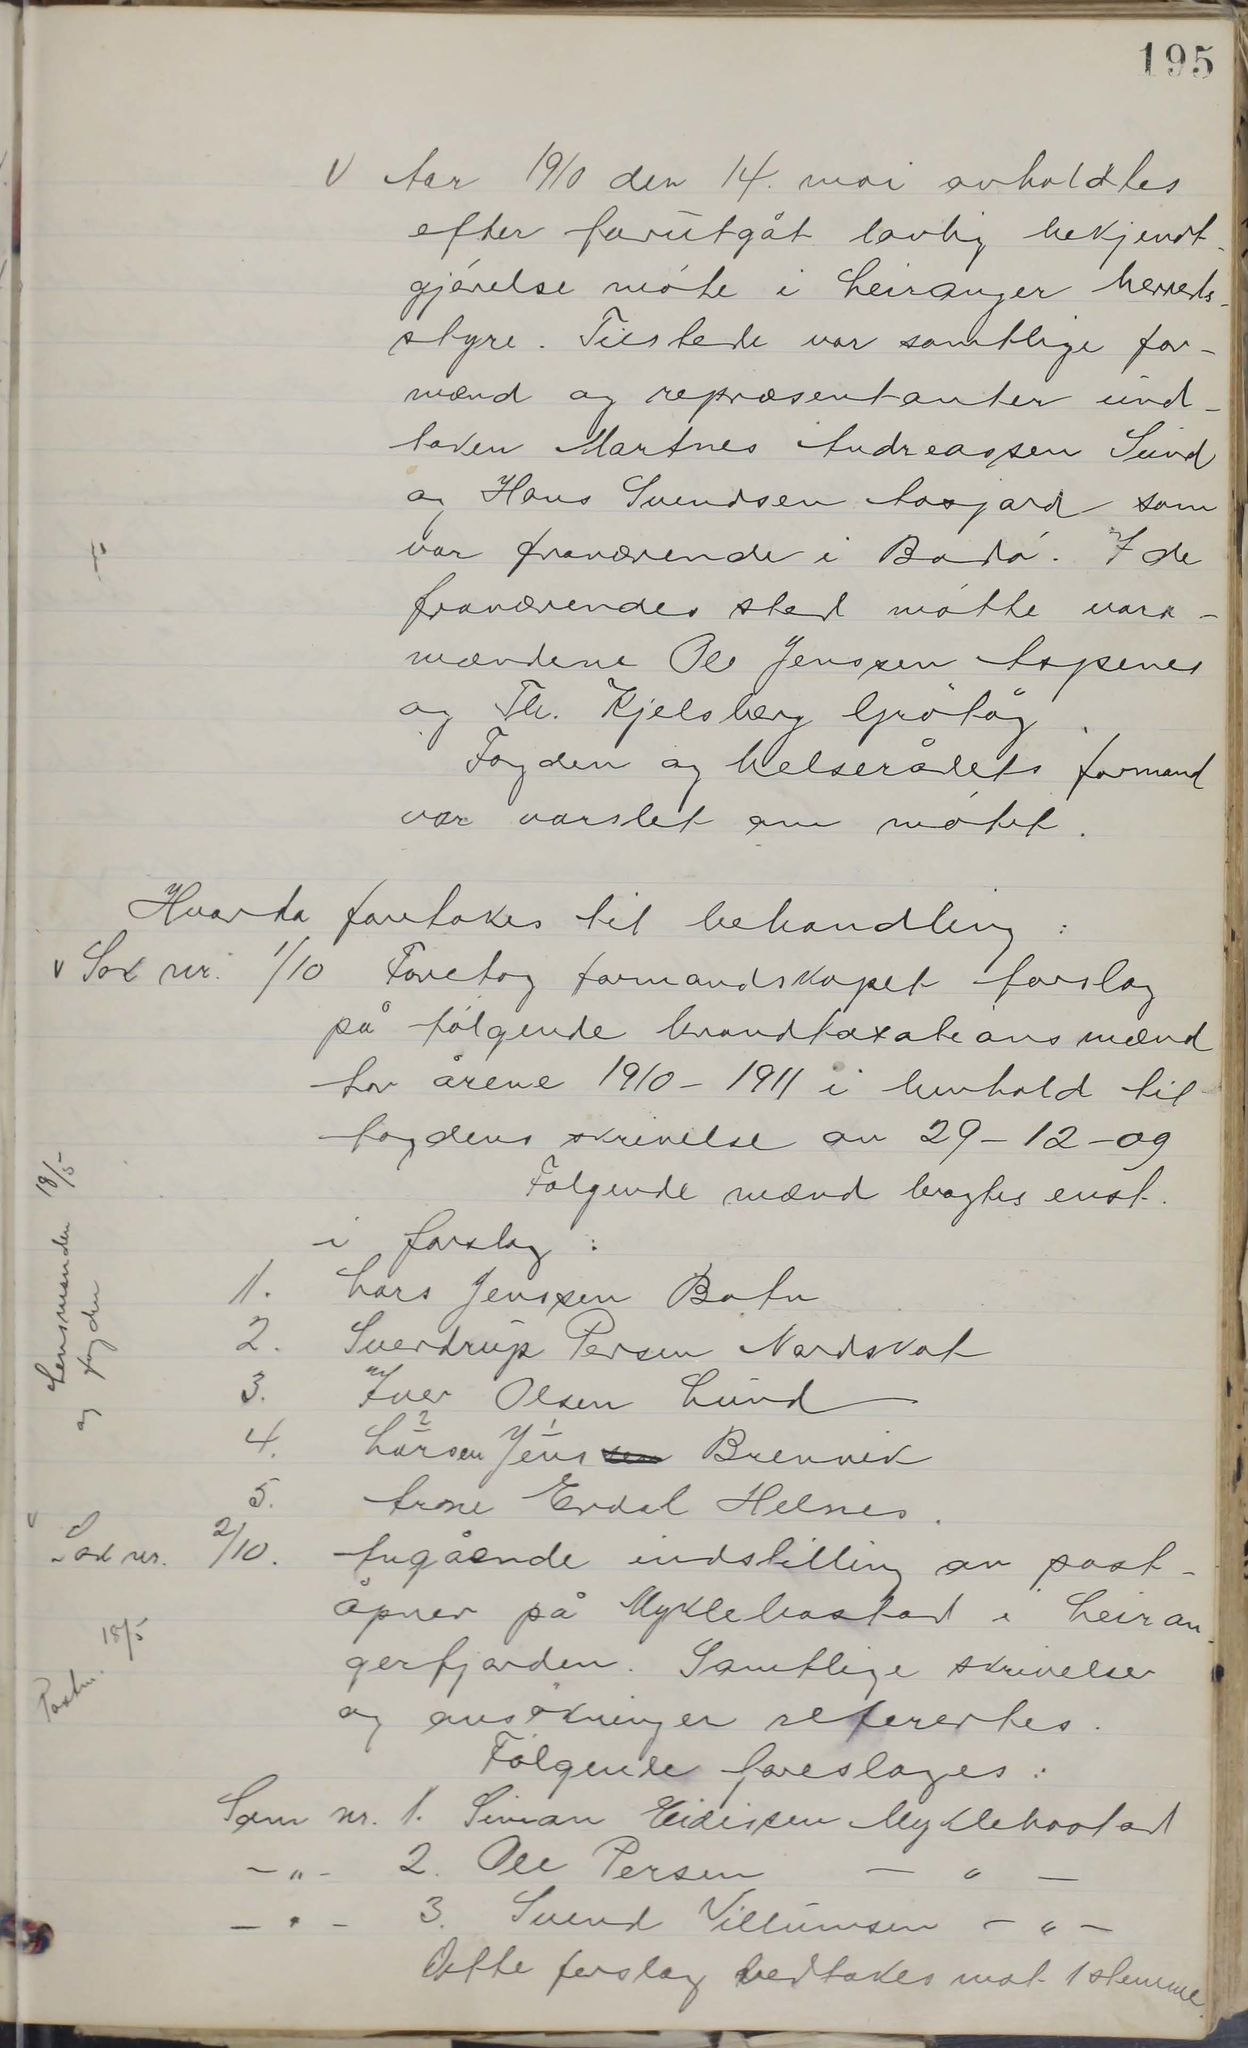 195
V Aar 1910 den 14. mai avholdtes
efter forutgåt lovlig bekjendt-
gjørelse møte i Leiranger herreds-
styre. Tilstede var samtlige for-
mænd og repræsentanter und-
taken Martnes Andreassen Sund
og Hans Svendsen Aasjord som
var fraværende i Bodø. I de
fraværendes sted møtte vara-
mændene Ole Jenssen Aspenes
og Th. Kjelsberg Grøtøy.
Fogden og helserådets formand
var varslet om møtet.
Hvorda foretokes til behandling:
v Sak nr. 1/10 Foretog formandskapet forslag
på følgende brandtaxationsmænd
for årene 1910-1911 i henhold til
fogdens skrivelse av 29-12-09
Følgende mænd bragtes enst.
i forslag:
Lensmanden 18/5
og fogden
1. Lars Jenssen Botn
2. Sverdrup Persen Nordskot
3. Iver Olsen Lund
4. Larsen Jens Brennvik
5. Arne Erdal Helnes.
Sak nr. 2/10. Angående indstilling av post-
åpner på Myklebostad i Leiran-
gerfjorden. Samtlige skrivelser
og ansøkninger refererтes.
Postm. 18/5
Følgende foreslåges:
Som nr. 1. Simon Eidissen Myklebostad
-"- 2. Ole Persen - " -
-"- 3. Svend Villumsen - " -
Dette forslag vedtokes mot 1 stemme.